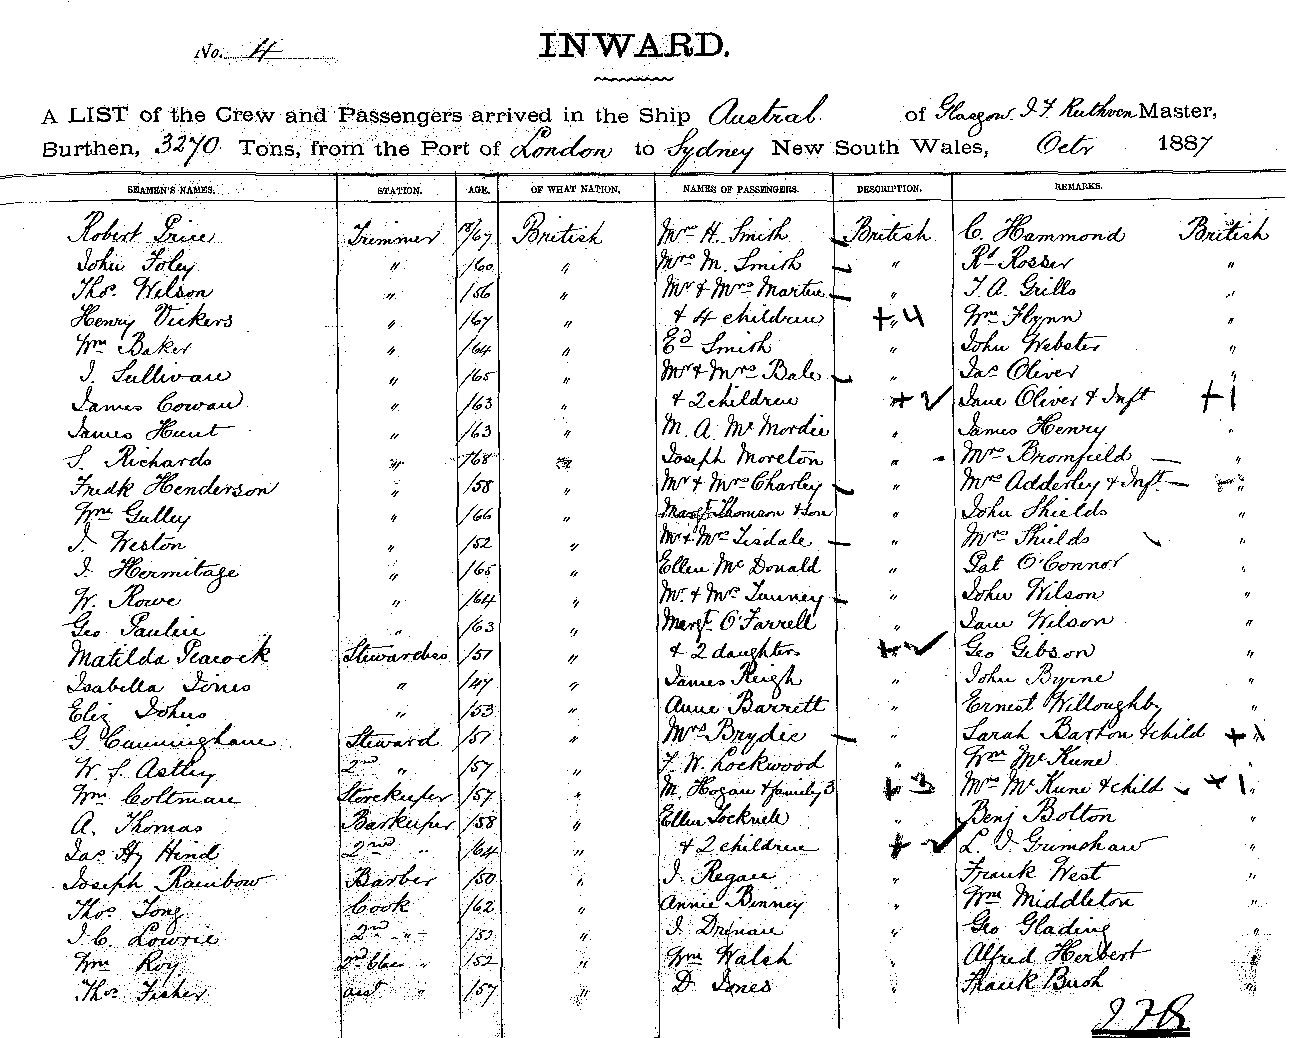 No. 4
INWARD.
A LIST of the Crew and Passengers arrived in the Ship Austral of Glasgow J F Ruthven Master,
Burthen, 3270 Tons, from the Port of London to Sydney New South Wales, Octr 1887
SEAMEN'S NAMES. STATION. AGE. OF WHAT NATION. NAMES OF PASSENGERS. DESCRIPTION. REMARKS.
Robert Price Trimmer 18/67 British Mrs H. Smith British C. Hammond British
John Foley " /60 " Mrs M. Smith " Rd Rosser "
Thos. Wilson " /56 " Mr & Mrs Martin " T. A. Grills "
Henry Vickers " /67 " & 4 children " +4 Wm Flynn "
Wm Baker " /64 " Ed Smith " John Webster "
J. Sullivan " /65 " Mr & Mrs Bale " Jas Oliver "
James Cowan " /63 " & 2 children " + 2 Jane Oliver & Inft +1
James Hunt " /63 " M. A. McMordie " James Henry "
S. Richards " /68 " Joseph Moreton " Mrs Bromfield "
Fredk Henderson " /58 " Mr & Mrs Charley " Mrs Adderley & Inft "
Wm Gulley " /66 " Margt Thomson & son " John Shields "
J. Weston " /52 " Mr & Mrs Tisdale " Mrs Shields "
J. Hermitage " /65 " Ellen McDonald " Pat O'Connor "
W. Rowe " /64 " Mr & Mrs Tanney " John Wilson "
Geo Paulin " /63 " Margt O'Farrell " Jane Wilson "
Matilda Peacock Stewardess /51 " & 2 daughters + 2 Geo Gibson "
Isabella Jones " /47 " James Reigh " John Byrne "
Eliz Johns " /53 " Anne Barrett " Ernest Willoughby "
G. Cunninghame Steward /51 " Mrs Brydie " Sarah Barton & child + 1
W. S. Astley 2nd " /57 " F. W. Lockwood " Wm McKune "
Wm Coltman Storekeeper /57 " M. Hogan & family 3 + 3 Mrs McKune & child + 1 "
A. Thomas Barkeeper /58 " Ellen " Benj Bolton "
Jas Hy Hind 2nd " /64 " & 2 children + 2 L. J. Grimshaw "
Joseph Rainbow Barber /50 " J. Regan " Frank West "
Thos Tong Cook /62 " Annie Binney " Wm Middleton "
J. C. Lowrie 2nd " /52 " J. Drinan " Geo Glading "
Wm Roy 2nd Class " /52 " Wm Walsh " Alfred Herbert "
Thos Fisher asst " /57 " D. Jones " Frank Bush "
J F R